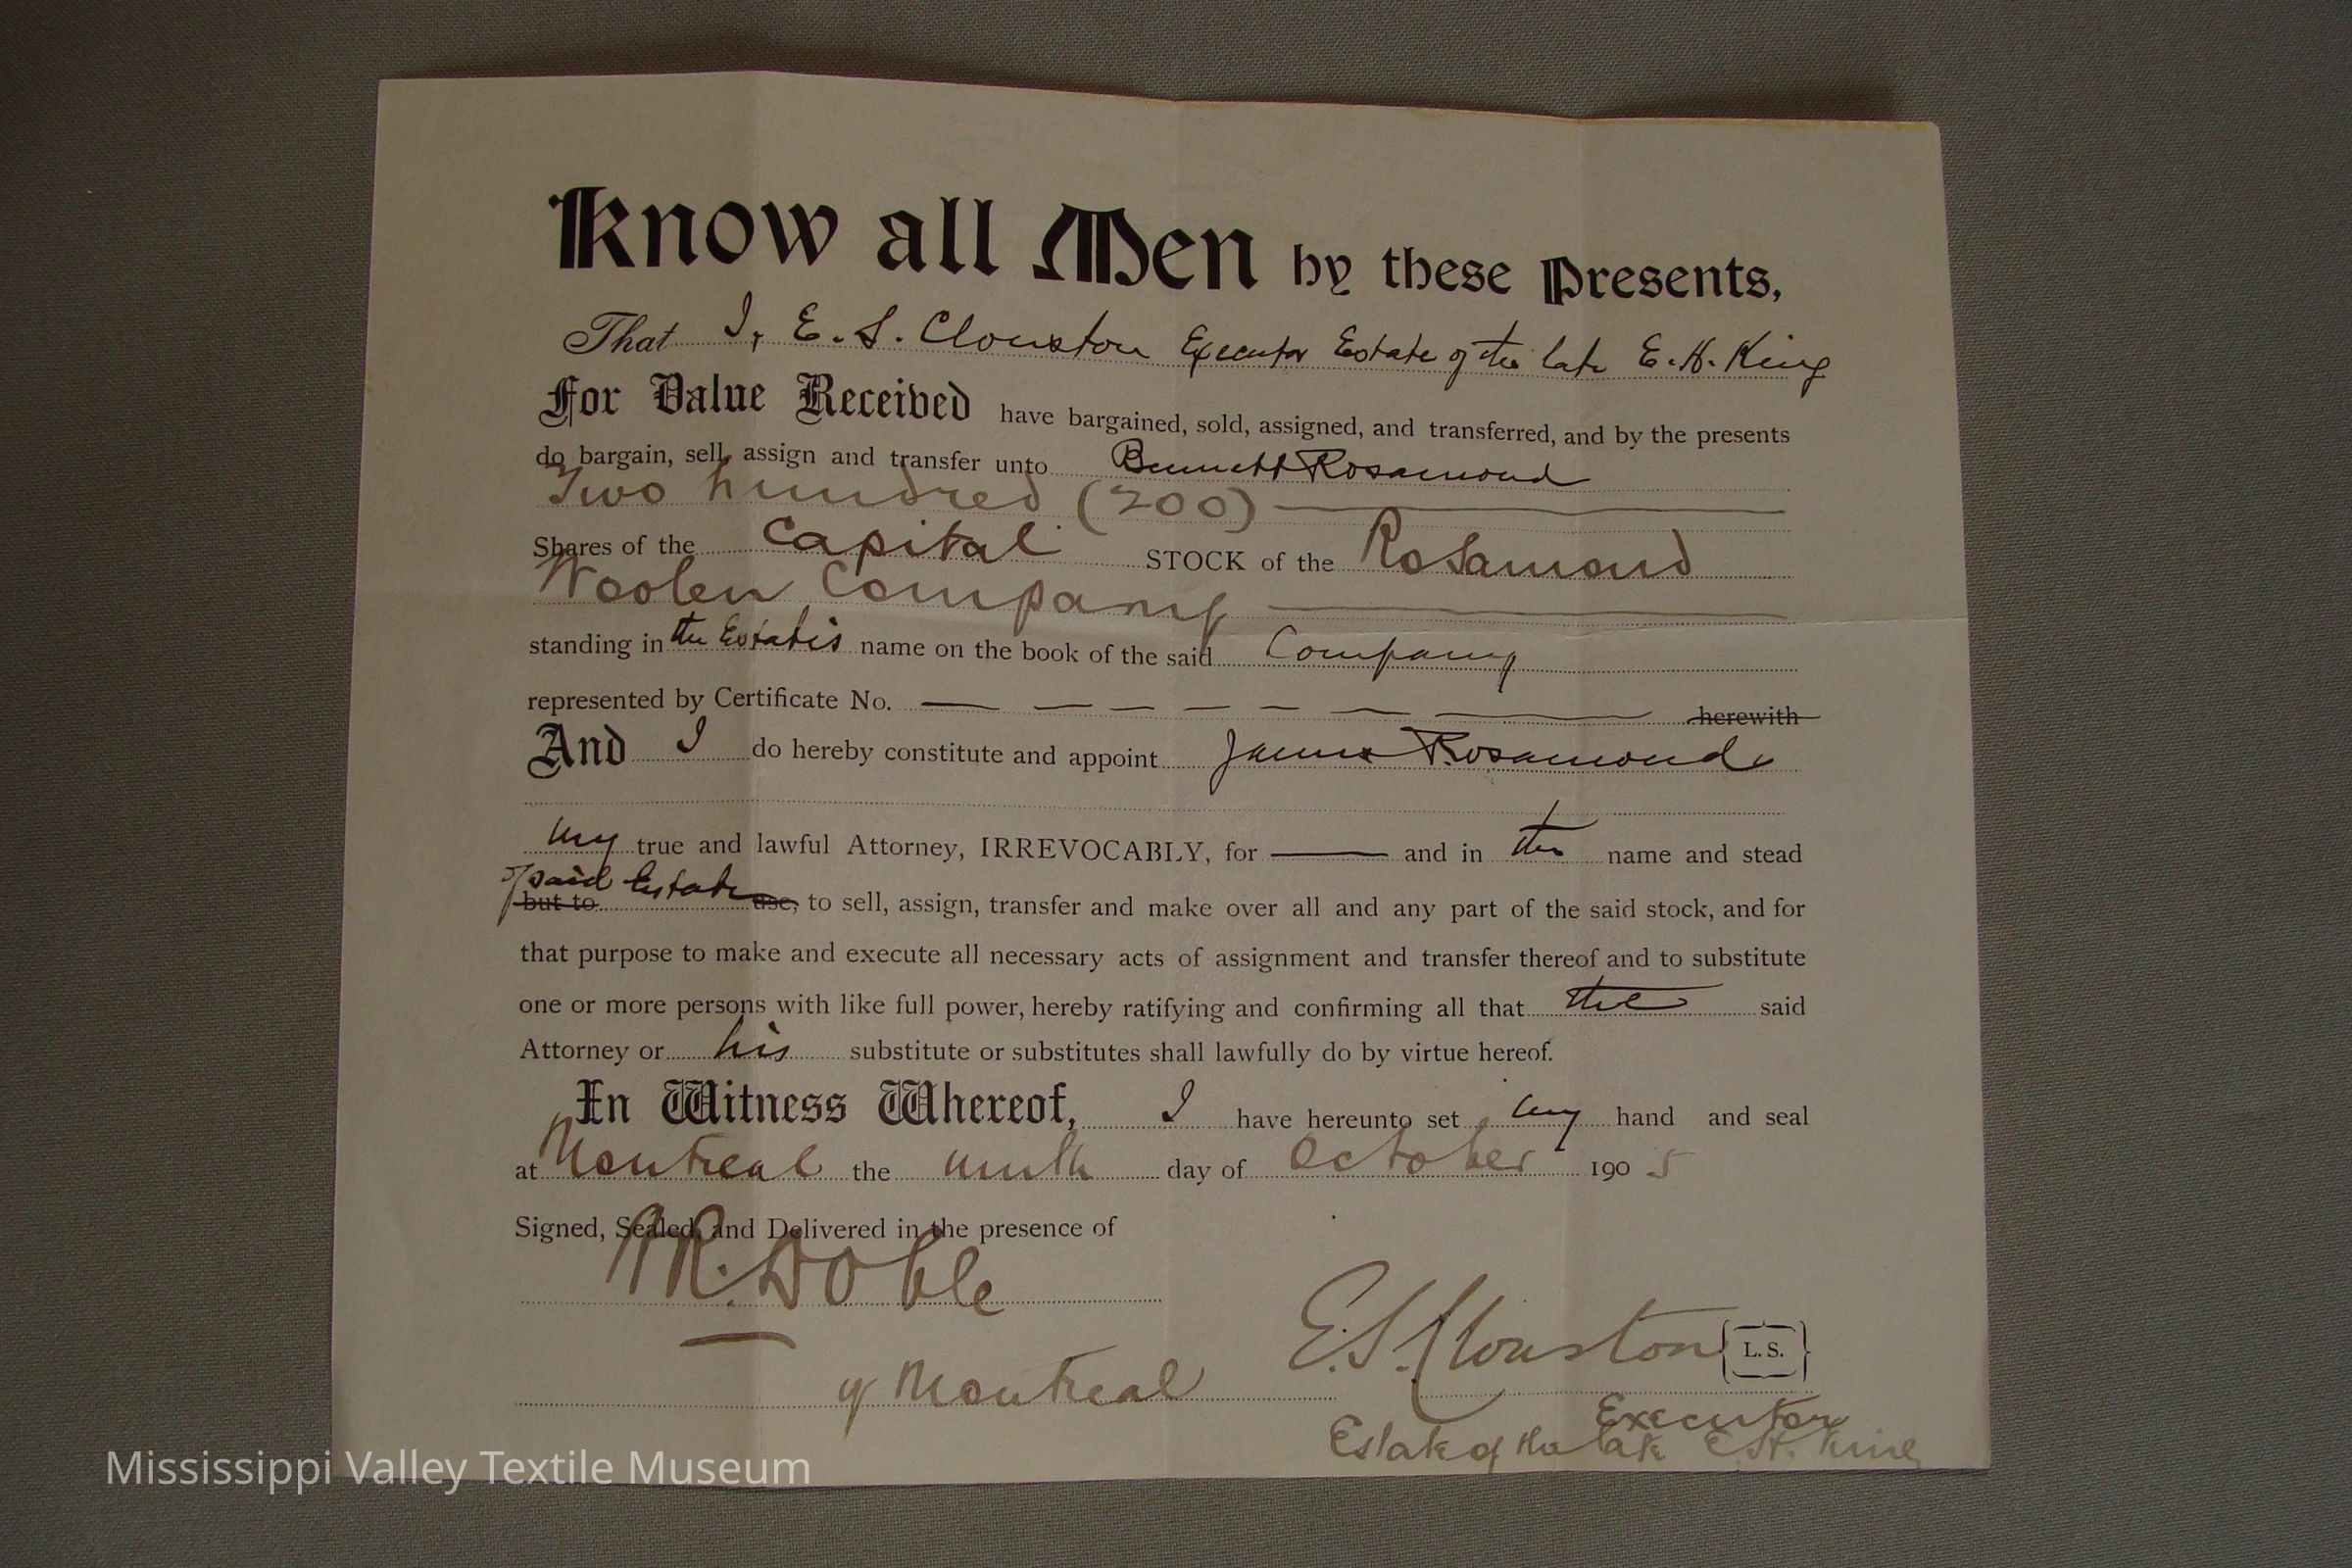 Know all Men by these Presents,
That I, E. S. Clouston Executor Estate of the late E. H. King
For Value Received have bargained, sold, assigned, and transferred, and by the presents
do bargain, sell, assign and transfer unto Bennett Rosamond
Two hundred (200)
Shares of the Capital STOCK of the Rosamond
Woolen Company
standing in the Estate's name on the book of the said Company
represented by Certificate No. — — — — — — — herewith
And I do hereby constitute and appoint James Rosamond
my true and lawful Attorney, IRREVOCABLY, for — and in the name and stead
of said Estate
but to use, to sell, assign, transfer and make over all and any part of the said stock, and for
that purpose to make and execute all necessary acts of assignment and transfer thereof and to substitute
one or more persons with like full power, hereby ratifying and confirming all that the said
Attorney or his substitute or substitutes shall lawfully do by virtue hereof.
In Witness Whereof, I have hereunto set my hand and seal
at Montreal the ninth day of October 1905
Signed, Sealed, and Delivered in the presence of
Doble
E.S. Clouston L.S.
of Montreal
Executor
Estate of the late E.H. King
Mississippi Valley Textile Museum